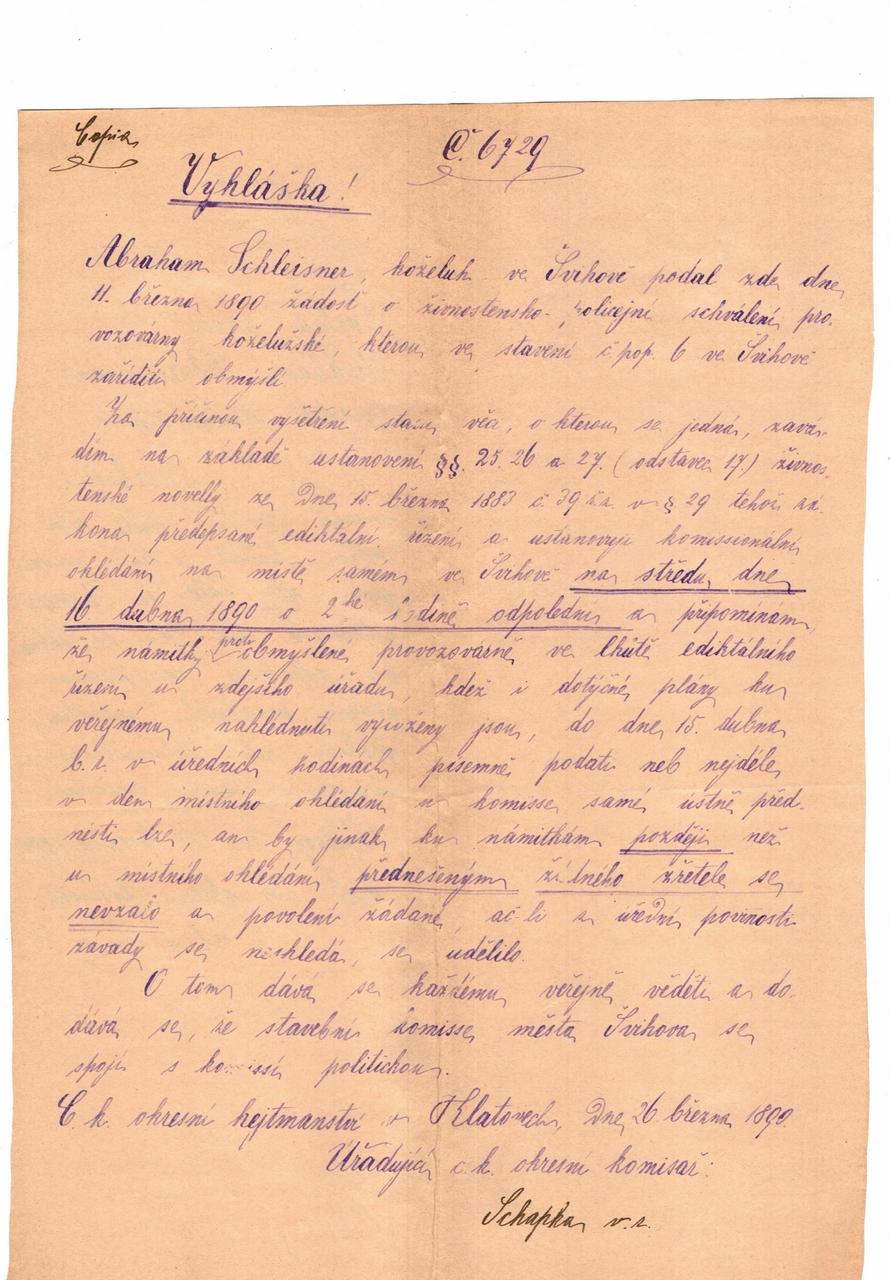 Copia
Č. 6729
Vyhláška!
Abraham Schleisner, koželuh ve Švihově podal zde dne
11. března 1890 žádosť o živnostensko-policejní schválení pro-
vozovárny koželužské, kterou ve stavení č pop. 6 ve Švihově
zaříditi obmýšlí.
Za příčinou vyšetření stavu věci, o kterou se jedná, zavá-
dím na základě ustanovení §§. 25. 26 a 27. (odstavec 17.) živnos-
tenské novelly ze dne 15. března 1883 č. 39 ř.z. v § 29 tehož zá-
kona předepsané ediktální řízení a ustanovuji komissionální
ohledání na místě samém ve Švihově na středu dne
16 dubna 1890 o 2hé hodině odpolední a připomínám,
že námitky proti obmýšlené provozovárně ve lhůtě ediktálního
řízení u zdejšího úřadu, kdež i dotýčné plány ku
veřejnému nahlédnutí vyloženy jsou, do dne 15. dubna
b. r. v úředních hodinách písemně podati neb nejdéle
v den místního ohledání u komisse samé ústně před-
nésti lze, an by jinak ku námitkám později než
u místního ohledání přednešeným žádného zřetele se
nevzalo a povolení žádané, ač-li z úřední povinnosti
závady se neshledá, se udělilo.
O tom dává se každému veřejně věděti a do-
dává se, že stavební komisse města Švihova se
spojí s komissí politickou.
C. k. okresní hejtmanství v Klatovech, dne 26. března 1890.
Úřadující c. k. okresní komisař:
Schapka v. r.